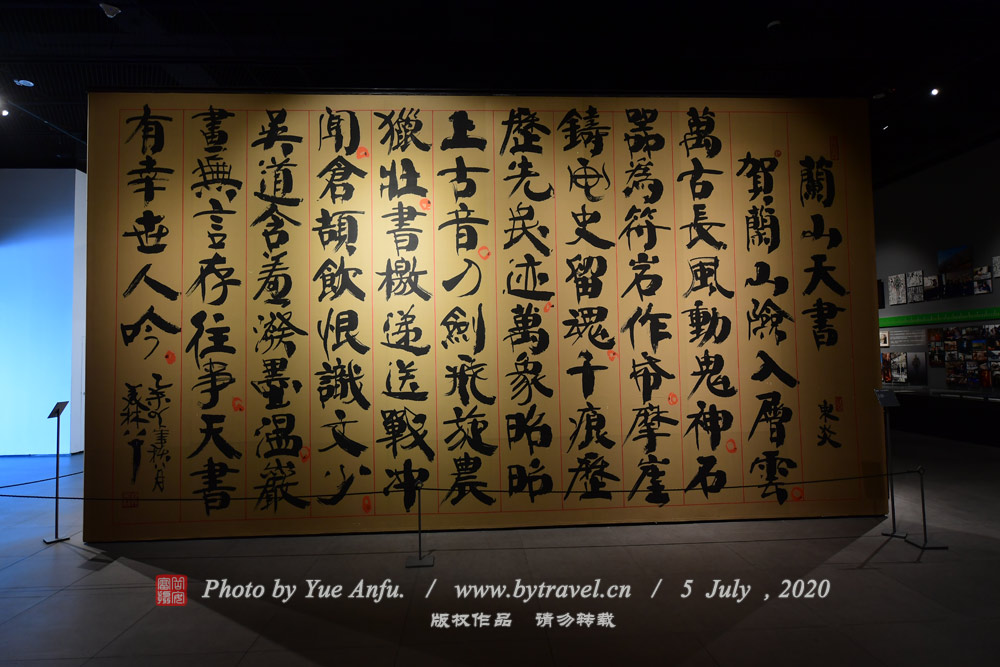 蘭山天書 東炎
賀蘭山險入層雲
萬古長風動鬼神石
器為符岩作帋摩崖
鑄史留魂千痕歷
歷先民迹萬象昭昭
上古音刀劍飛旋農
獵壯書檄递送戰冲
聞倉頡飲恨識文少
吳道含羞潑墨溫巖
畫無言存往事天書
有幸世人吟
Photo by Yue Anfu. / www.bytravel.cn / 5 July , 2020
版权作品 请勿转载